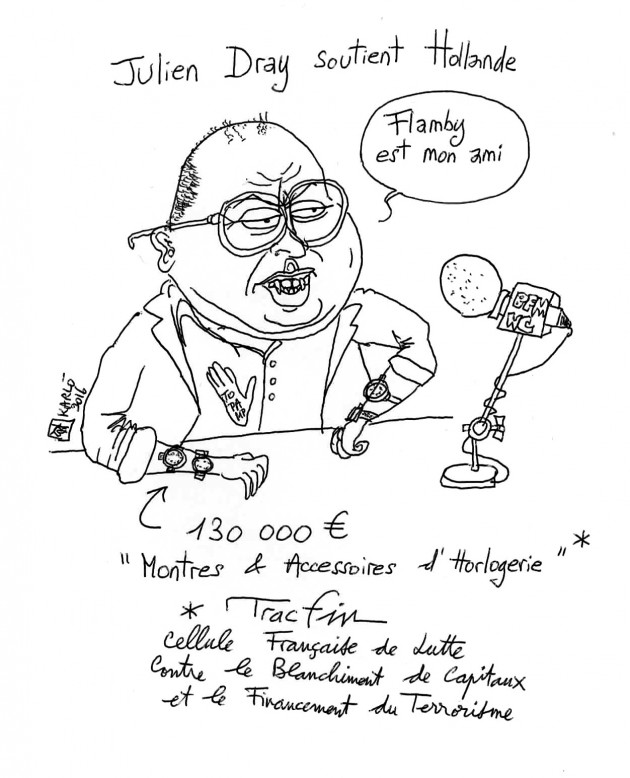 Julien Dray soutient Hollande
Flamby
est mon ami
BFM
WC
TO
PA
MP
KARLO
2016
130 000 €
"Montres & Accessoires d'Horlogerie" *
* Tracfin
Cellule Française de Lutte
Contre le Blanchiment de Capitaux
et le Financement du Terrorisme